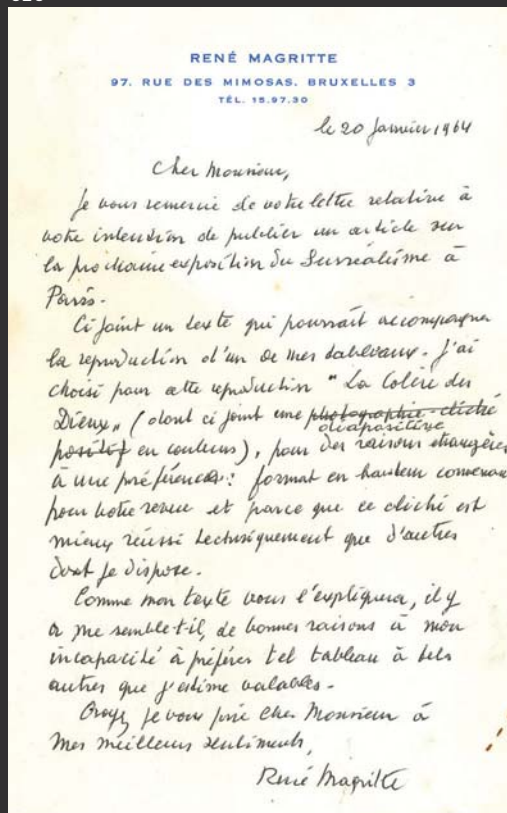 RENÉ MAGRITTE
97, RUE DES MIMOSAS, BRUXELLES 3
TÉL. 15.97.30
le 20 Janvier 1964
Cher Monsieur,
Je vous remercie de votre lettre relative à
votre intention de publier un article sur
la prochaine exposition du Surréalisme à
Paris.
Ci joint un texte qui pourrait accompagner
la reproduction d'un de mes tableaux. J'ai
choisi pour cette reproduction "La Colère des
Dieux" (dont ci joint une photographie-cliché
diapositive
positif en couleurs), pour des raisons étrangères
à une préférence : format en hauteur convenant
pour votre revue et parce que ce cliché est
mieux réussi techniquement que d'autres
dont je dispose.
Comme mon texte vous l'expliquera, il y
a me semble-t-il, de bonnes raisons à mon
incapacité à préférer tel tableau à tels
autres que j'estime valables.
Croyez je vous prie Cher Monsieur à
mes meilleurs sentiments,
René Magritte